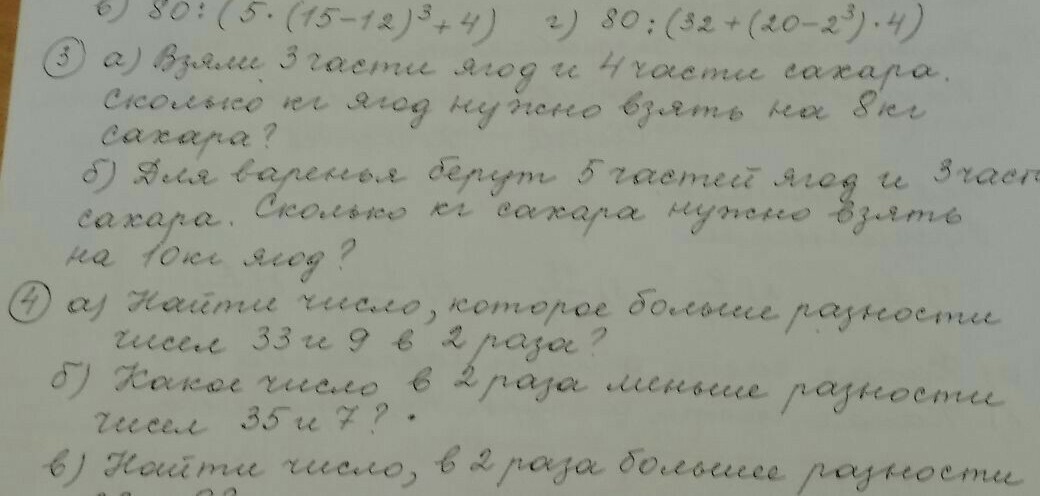 в) 80:(5·(15-12)³+4) г) 80:(32+(20-2³)·4)
③ а) Взяли 3 части ягод и 4 части сахара.
Сколько кг ягод нужно взять на 8 кг
сахара?
б) Для варенья берут 5 частей ягод и 3 част
сахара. Сколько кг сахара нужно взять
на 10 кг ягод?
④ а) Найти число, которое больше разности
чисел 33 и 9 в 2 раза?
б) Какое число в 2 раза меньше разности
чисел 35 и 7?
в) Найти число, в 2 раза большее разности